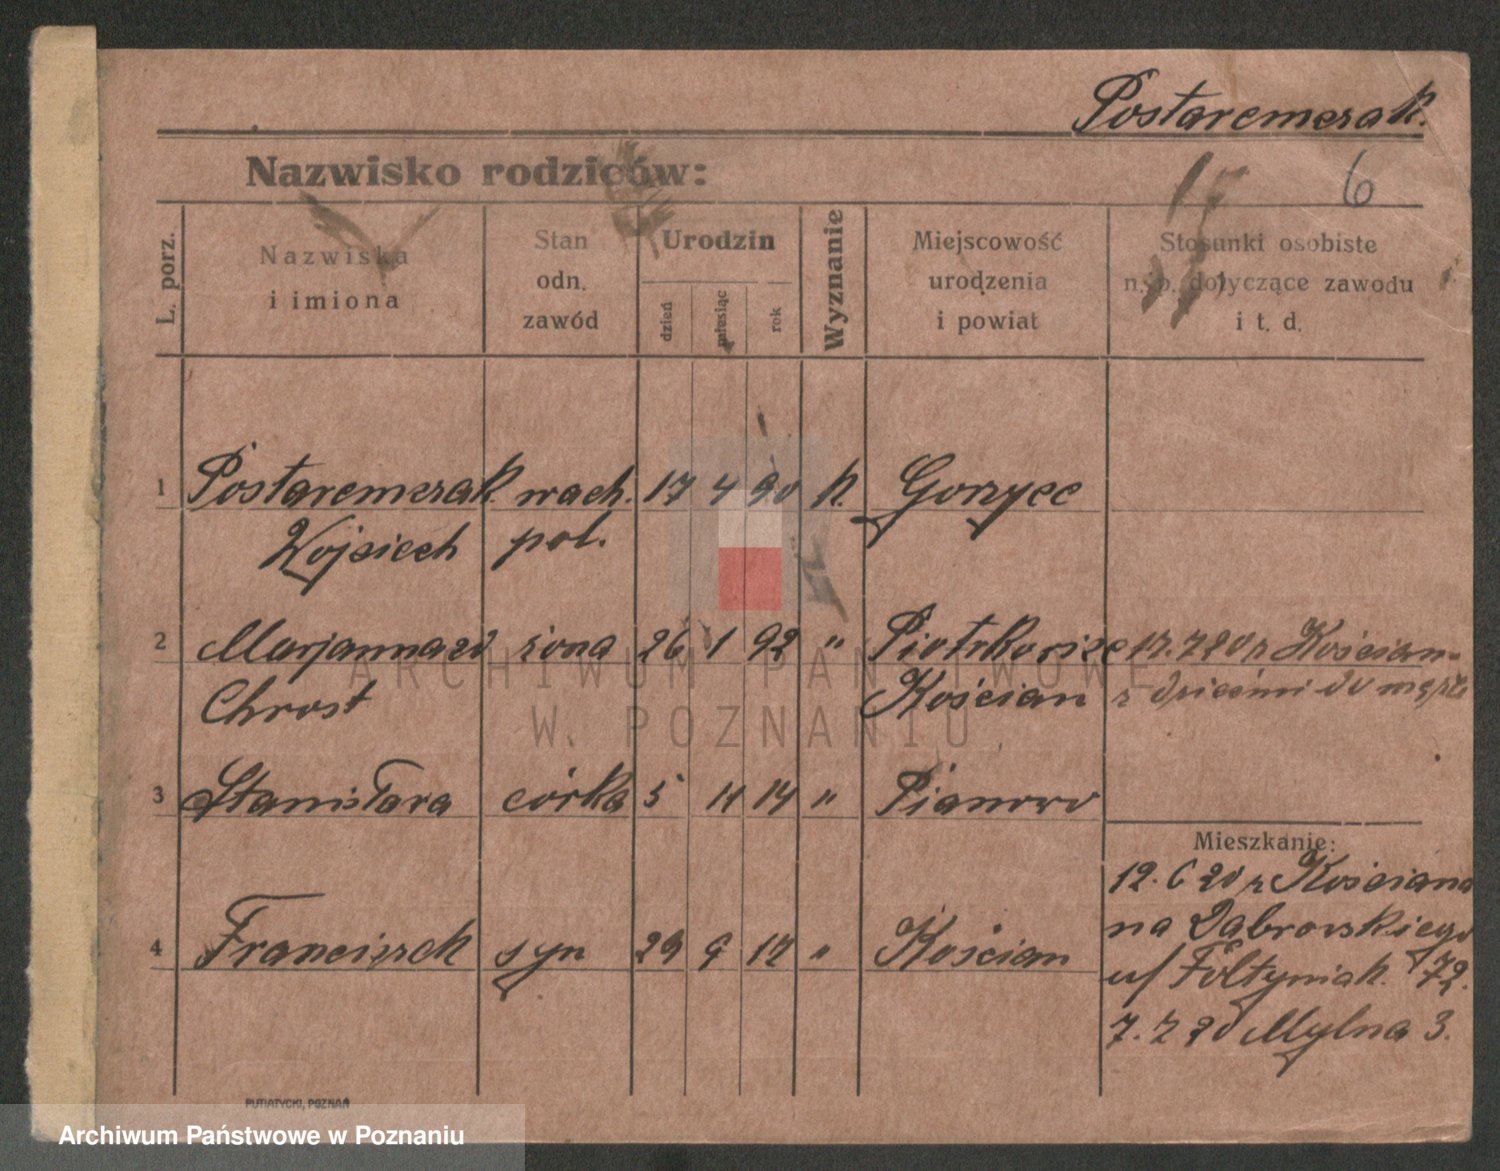 Postaremczak.
Nazwisko rodziców:
6
L. porz.
Nazwiska
i imiona
Stan
odn.
zawód
Urodzin
dzień
miesiąc
rok
Wyznanie
Miejscowość
urodzenia
i powiat
Stosunki osobiste
n. p. dotyczące zawodu
i t. d.
1 Postaremczak wach. 17 4 90 k. Gorzyce
Wojciech pol.
2 Marjanna zd żona 26 1 92 " 17.7 20 z Kościan-
Chrost Kościan z dziećmi do męża
3 Stanisława córka 5 11 14 " Pianowo
Mieszkanie:
12.6 20 z Kościana
na Dąbrowskiego
4 Franciszek syn 29 9 17 " Kościan
u/ Fołtyniak. 72.
7.7 20 Mylna 3.
PUTIATYCKI, POZNAŃ
ARCHIWUM PAŃSTWOWE
W POZNANIU
Archiwum Państwowe w Poznaniu